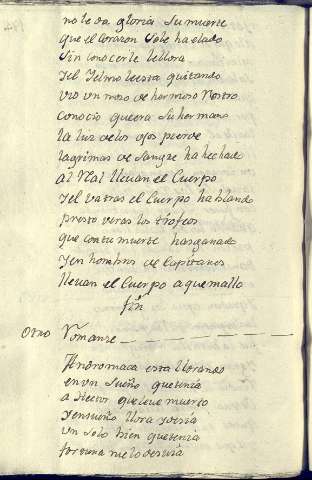 no le da gloria su muerte
que el corazon sele ha elado
sin conocerle le llora
Yel Yelmo le esta quitando
vio un mozo de hermoso Rostro
conocio que era su hermano
la luz de los ojos pierde
lagrimas de sangre ha hechado
al Real lleuan el Cuerpo
Yel va tras el Cuerpo hablando
presto veras los trofeos
que con tu muerte has ganado
Yen hombros de Capitanes
lleuan el Cuerpo a quemallo
fin
Otro Romanze
Andromaca esta llorando
en un sueño que tenia
a Hector que le ve muerto
Y en sueño llora y decia
un solo bien que tenia
fortuna me lo desuia